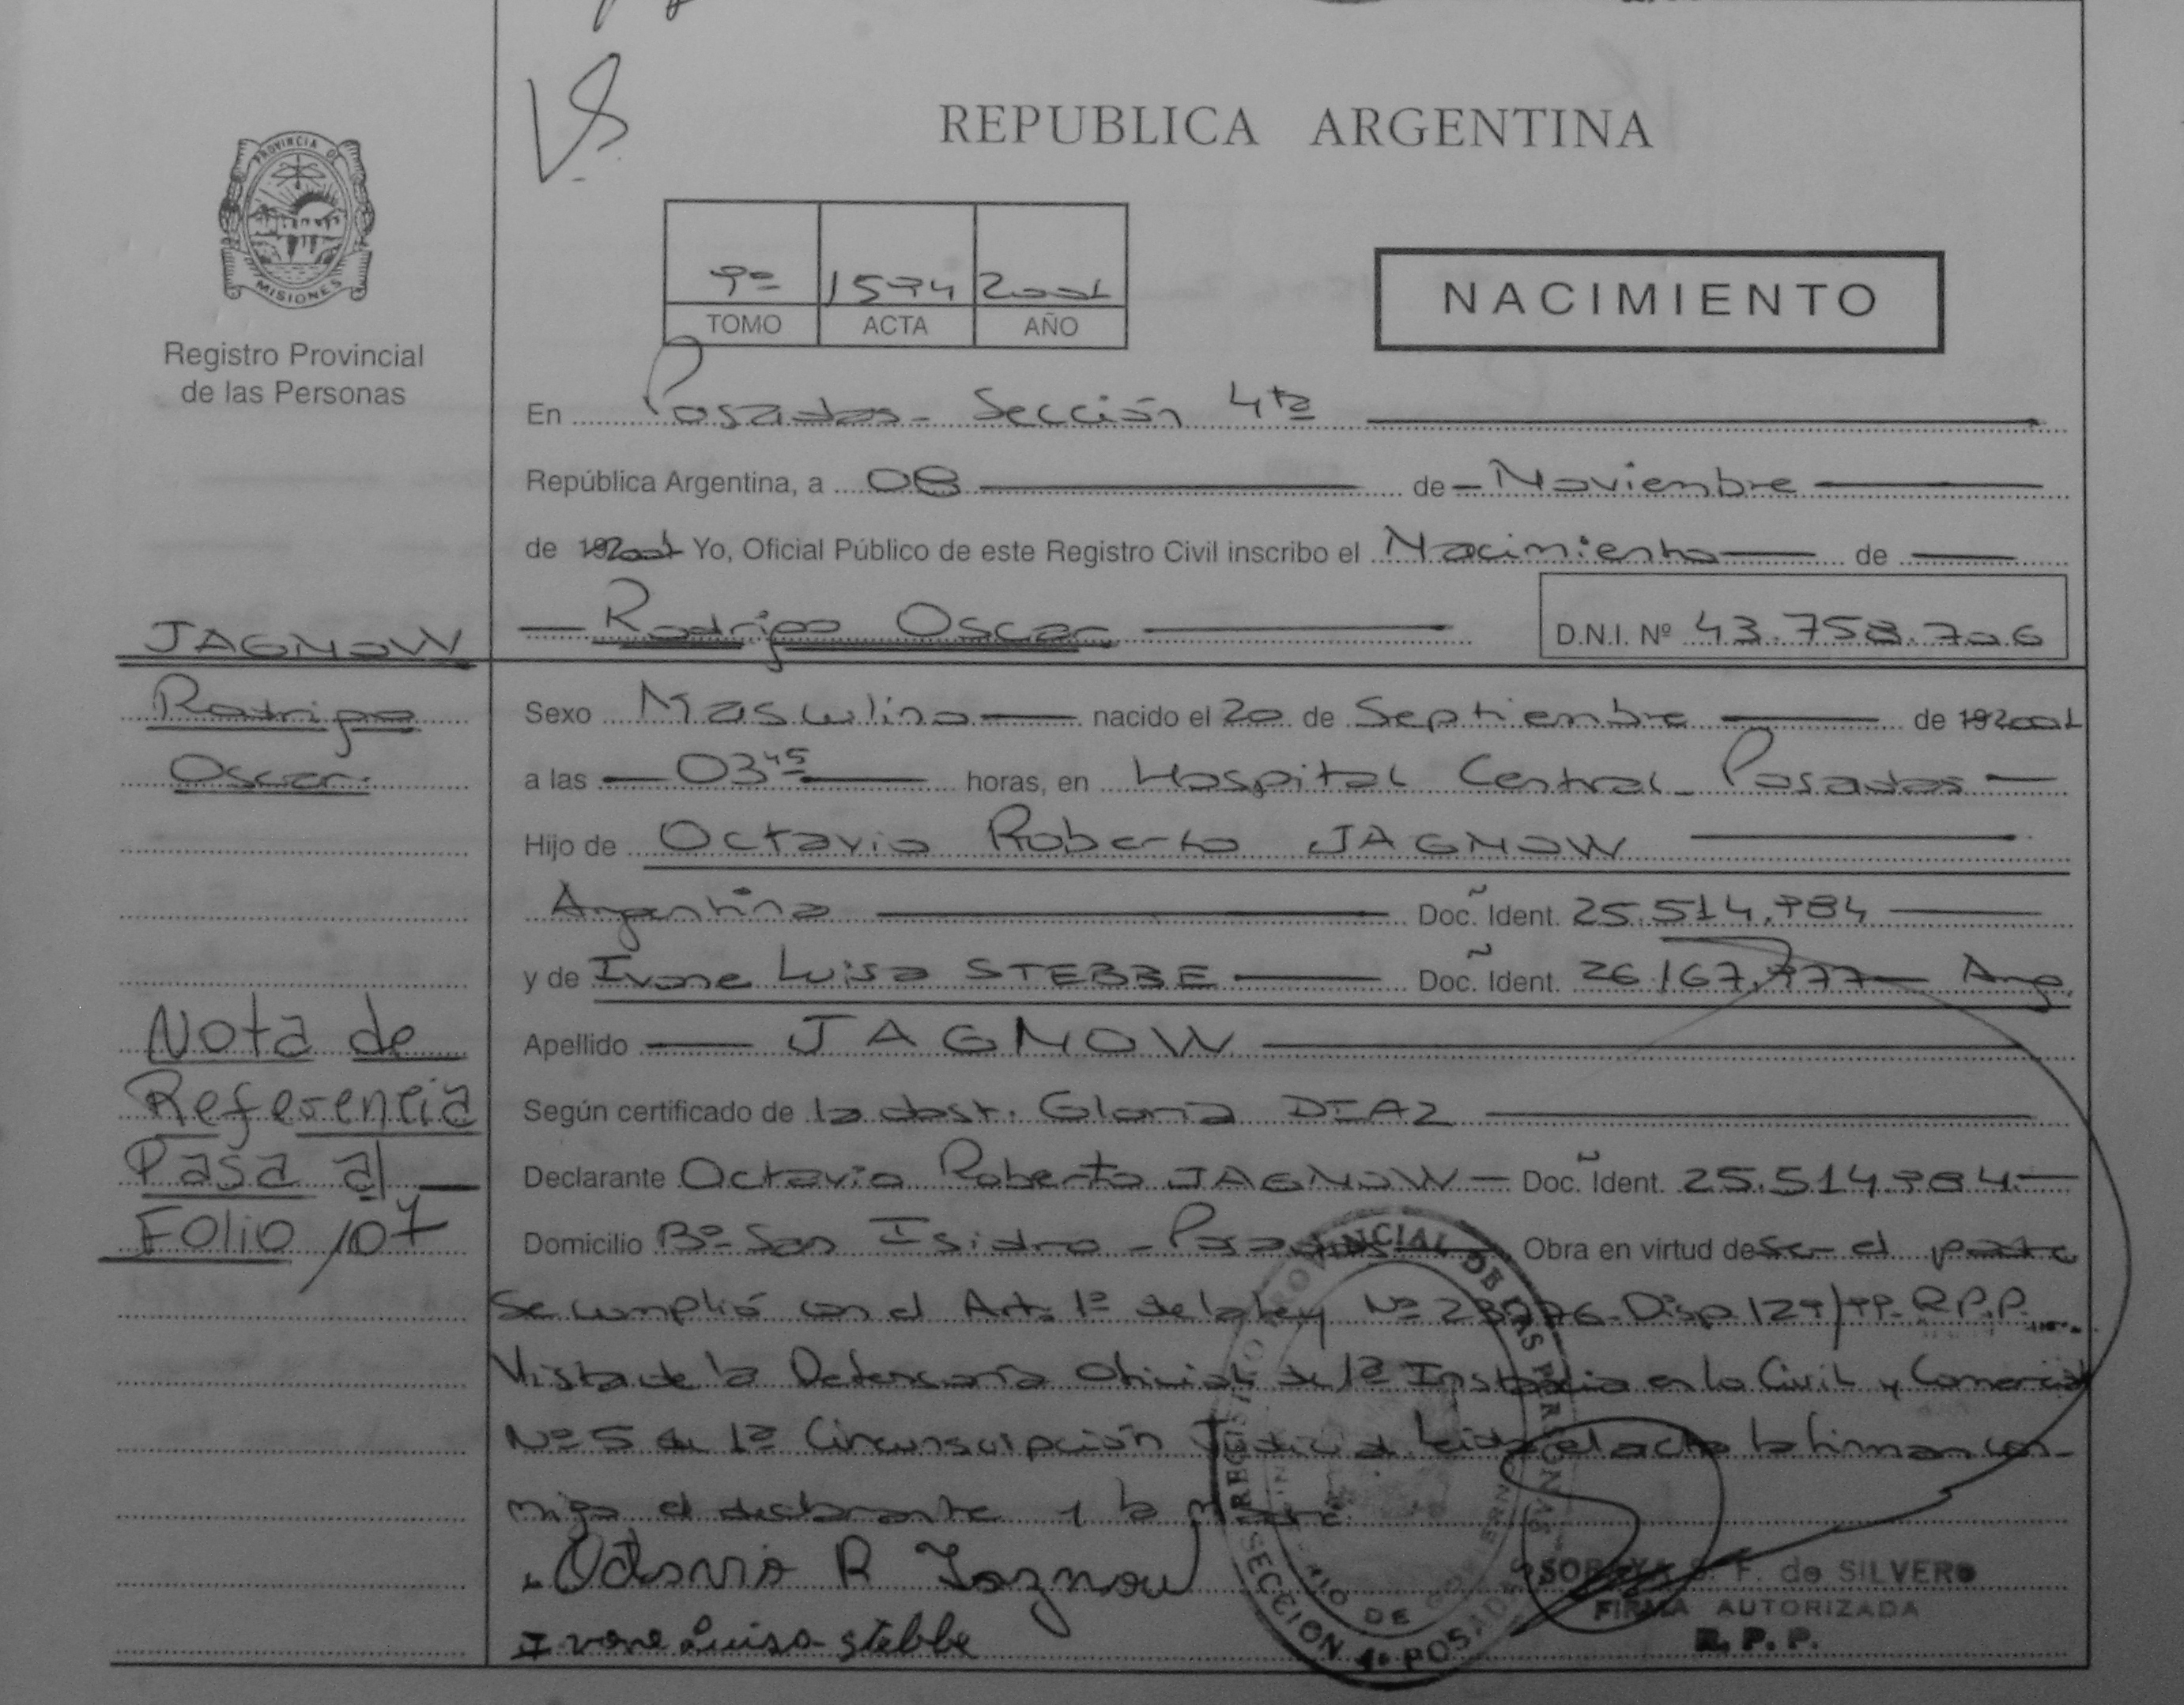 REPUBLICA ARGENTINA
PROVINCIA DE MISIONES
Registro Provincial
de las Personas
1574 2001
TOMO ACTA AÑO
NACIMIENTO
En Posadas - Sección 4ta
República Argentina, a 08 de Noviembre
de 192001 Yo, Oficial Público de este Registro Civil inscribo el Nacimiento de
Rodrigo Oscar D.N.I. Nº 43.758.706
JAGNOW
Rodrigo
Oscar
Sexo Masculino nacido el 20 de Septiembre de 192001
a las 03 45 horas, en Hospital Central - Posadas
Hijo de Octavio Roberto JAGNOW
Argentino Doc. Ident. 25.514.984
y de Ivone Luisa STEBBE Doc. Ident. 26.167.977 Arg.
Apellido JAGNOW
Según certificado de la doct. Gloria DIAZ
Declarante Octavio Roberto JAGNOW - Doc. Ident. 25.514.984.-
Domicilio Bº San Isidro - Posadas Obra en virtud de ser el padre
Nota de
Referencia
Pasa al
Folio 107
Se cumplió con el Art. 1º de la ley Nº 23776 - Disp 129/99 - R.P.P.
Vista de la Defensoría Oficial de 1º Instancia en lo Civil y Comercial
Nº 5 de 1º Circunscripción Judicial. Leída el acta la firman con-
migo el declarante y la madre
Octavio R Jagnow
Ivone Luisa Stebbe
REGISTRO PROVINCIAL DE LAS PERSONAS
SECCION 4º POSADAS
SORAYA S. F. de SILVERO
FIRMA AUTORIZADA
R. P. P.